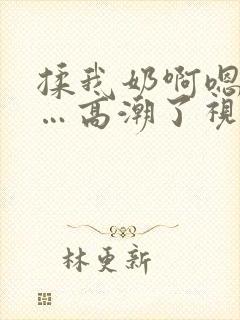 揉我奶啊嗯
…高潮了视
林更新